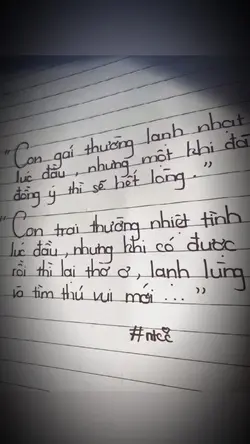 "Con gái thường lạnh nhạt
lúc đầu, nhưng một khi đã
đồng ý thì sẽ hết lòng."
"Con trai thường nhiệt tình
lúc đầu, nhưng khi có được
rồi thì lại thờ ơ, lạnh lùng
và tìm thú vui mới ..."